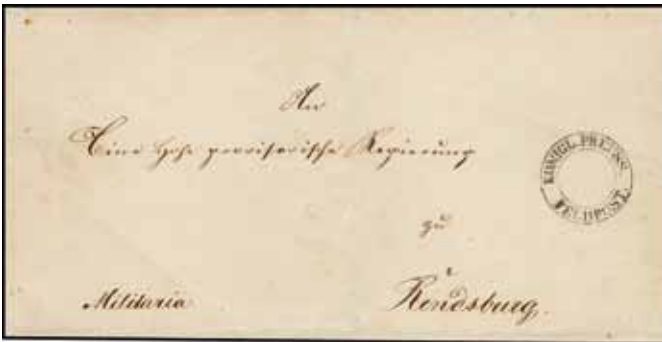 An
Eine Hohe provisorische Regierung
KÖNIGL. PREUSS.
FELDPOST.
zu
Militaria
Rendsburg.